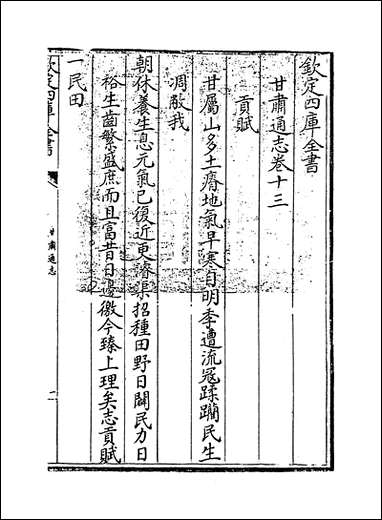 欽定四庫全書
甘肅通志卷十三
貢賦
甘屬山多土瘠地氣早寒自明季遭流寇蹂躪民生
凋敝我
朝休養生息元氣已復近更濬渠招種田野日闢民力日
裕生齒繁盛庶而且富昔日邊徼今臻上理矣志貢賦
一民田
欽定四庫全書
甘肅通志